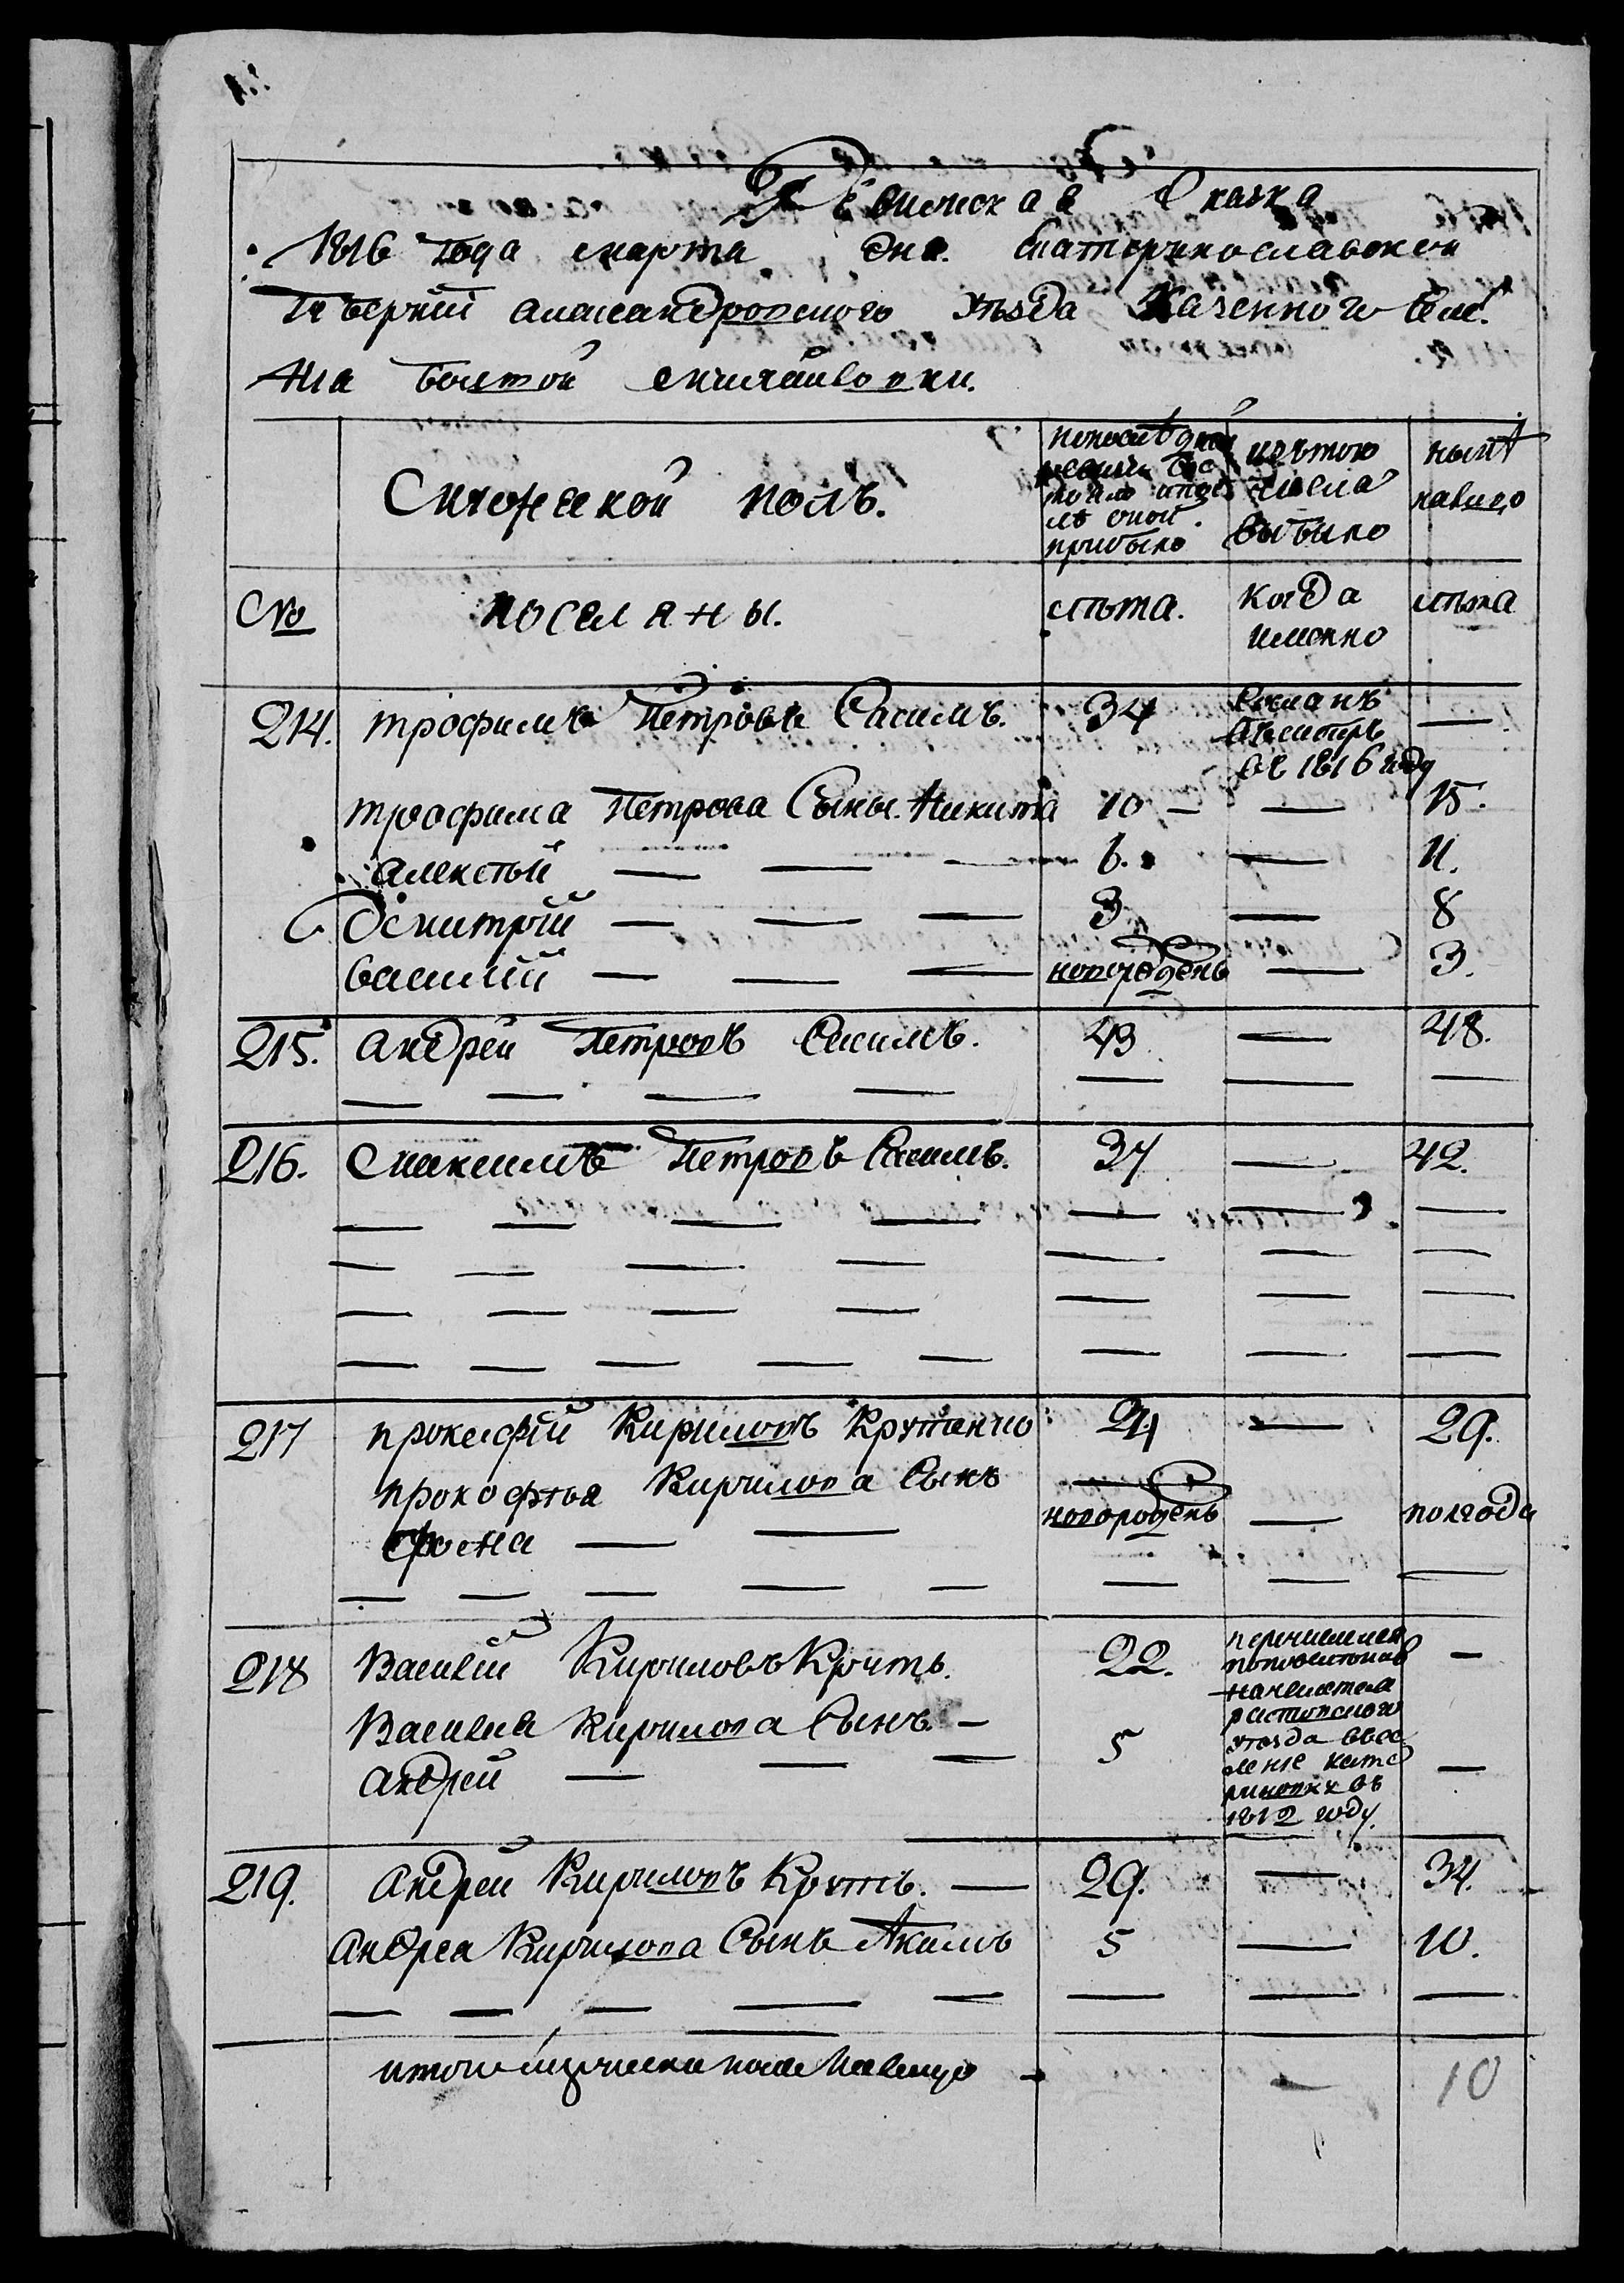 Ревижская Сказка
1816 года марта дня Екатеринославской
Губернии александровского уѣзда Казенного Селе
нія Бѣлой михайловки.
Мужеской полъ.
По последней ревизіи состояло и после оной прибыло
изъ того числа выбыло
нынѣ на лицо
№
поселяны.
лѣта.
когда именно
лѣта
214. трофимъ Петровъ Сасимъ. 34 — въ 1816 году —
трофима Петрова Сыны. Никита 10 — — 15.
алексѣй — — — 6. — 11.
Дмитрій — — — 3 — 8
василій — — — новорожденъ — 3.
215. андрей Петровъ Сасимъ. 43 — 48.
216. Максимъ Петровъ Сасимъ. 37 — 42.
217 прокофій Кириловъ Крутенко 24 — 29.
прокофья Кирилова Сынъ
фома — — новорожденъ — полгода
218 Василій Кириловъ Круть. 22. —
Василія Кирилова Сынъ —
андрей — — — 5 —
перечисленъ
уѣзда въсе
леніе кате
риновку въ
1812 году.
219. Андрей Кириловъ Круть. — 29. — 34.
Андрея Кирилова Сынъ Акимъ 5 — 10.
итого мужеска пола Налицо — — 10